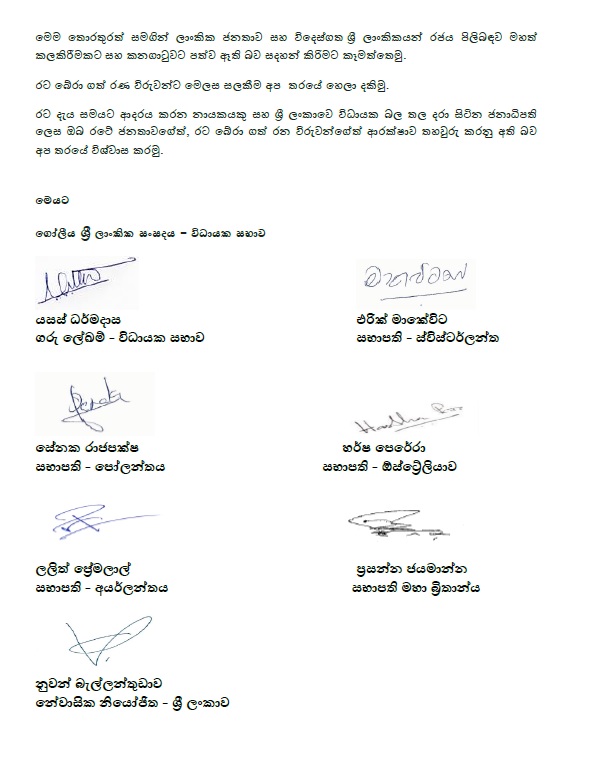 මෙම තොරතුරත් සමගින් ලාංකික ජනතාව සහ විදෙස්ගත ශ්‍රී ලාංකිකයන් රජය පිලිබඳව මහත්
කලකිරීමකට සහ කනගාටුවට පත්ව ඇති බව සදහන් කිරීමට කැමත්තෙමු.
රට බේරා ගත් රණ විරුවන්ට මෙලස සලකීම අප තරයේ හෙලා දකිමු.
රට දැය සමයට ආදරය කරන නායකයකු සහ ශ්‍රී ලංකාවෙ විධායක බල තල දරා සිටින ජනාධිපති
ලෙස ඔබ රටේ ජනතාවගේත්, රට බේරා ගත් රන විරුවන්ගේත් ආරක්ෂාව තහවුරු කරනු අති බව
අප තරයේ විශ්වාස කරමු.
මෙයට
ගෝලීය ශ්‍රී ලාංකික සංසදය – විධායක සභාව
යසස් ධර්මදාස
ගරු ලේඛම් - විධායක සභාව
එරික් මාකේවිට
සභාපති - ස්විස්ටර්ලන්ත
සේනක රාජපක්ෂ
සභාපති - පෝලන්තය
හර්ෂ පෙරේරා
සභාපති - ඕස්ට්‍රේලියාව
ලලිත් ප්‍රේමලාල්
සභාපති - අයර්ලන්තය
ප්‍රසන්න ජයමාන්න
සභාපති මහා බ්‍රිතාන්ය
නුවන් බැල්ලන්තුඩාව
නේවාසික නියෝජිත - ශ්‍රී ලංකාව